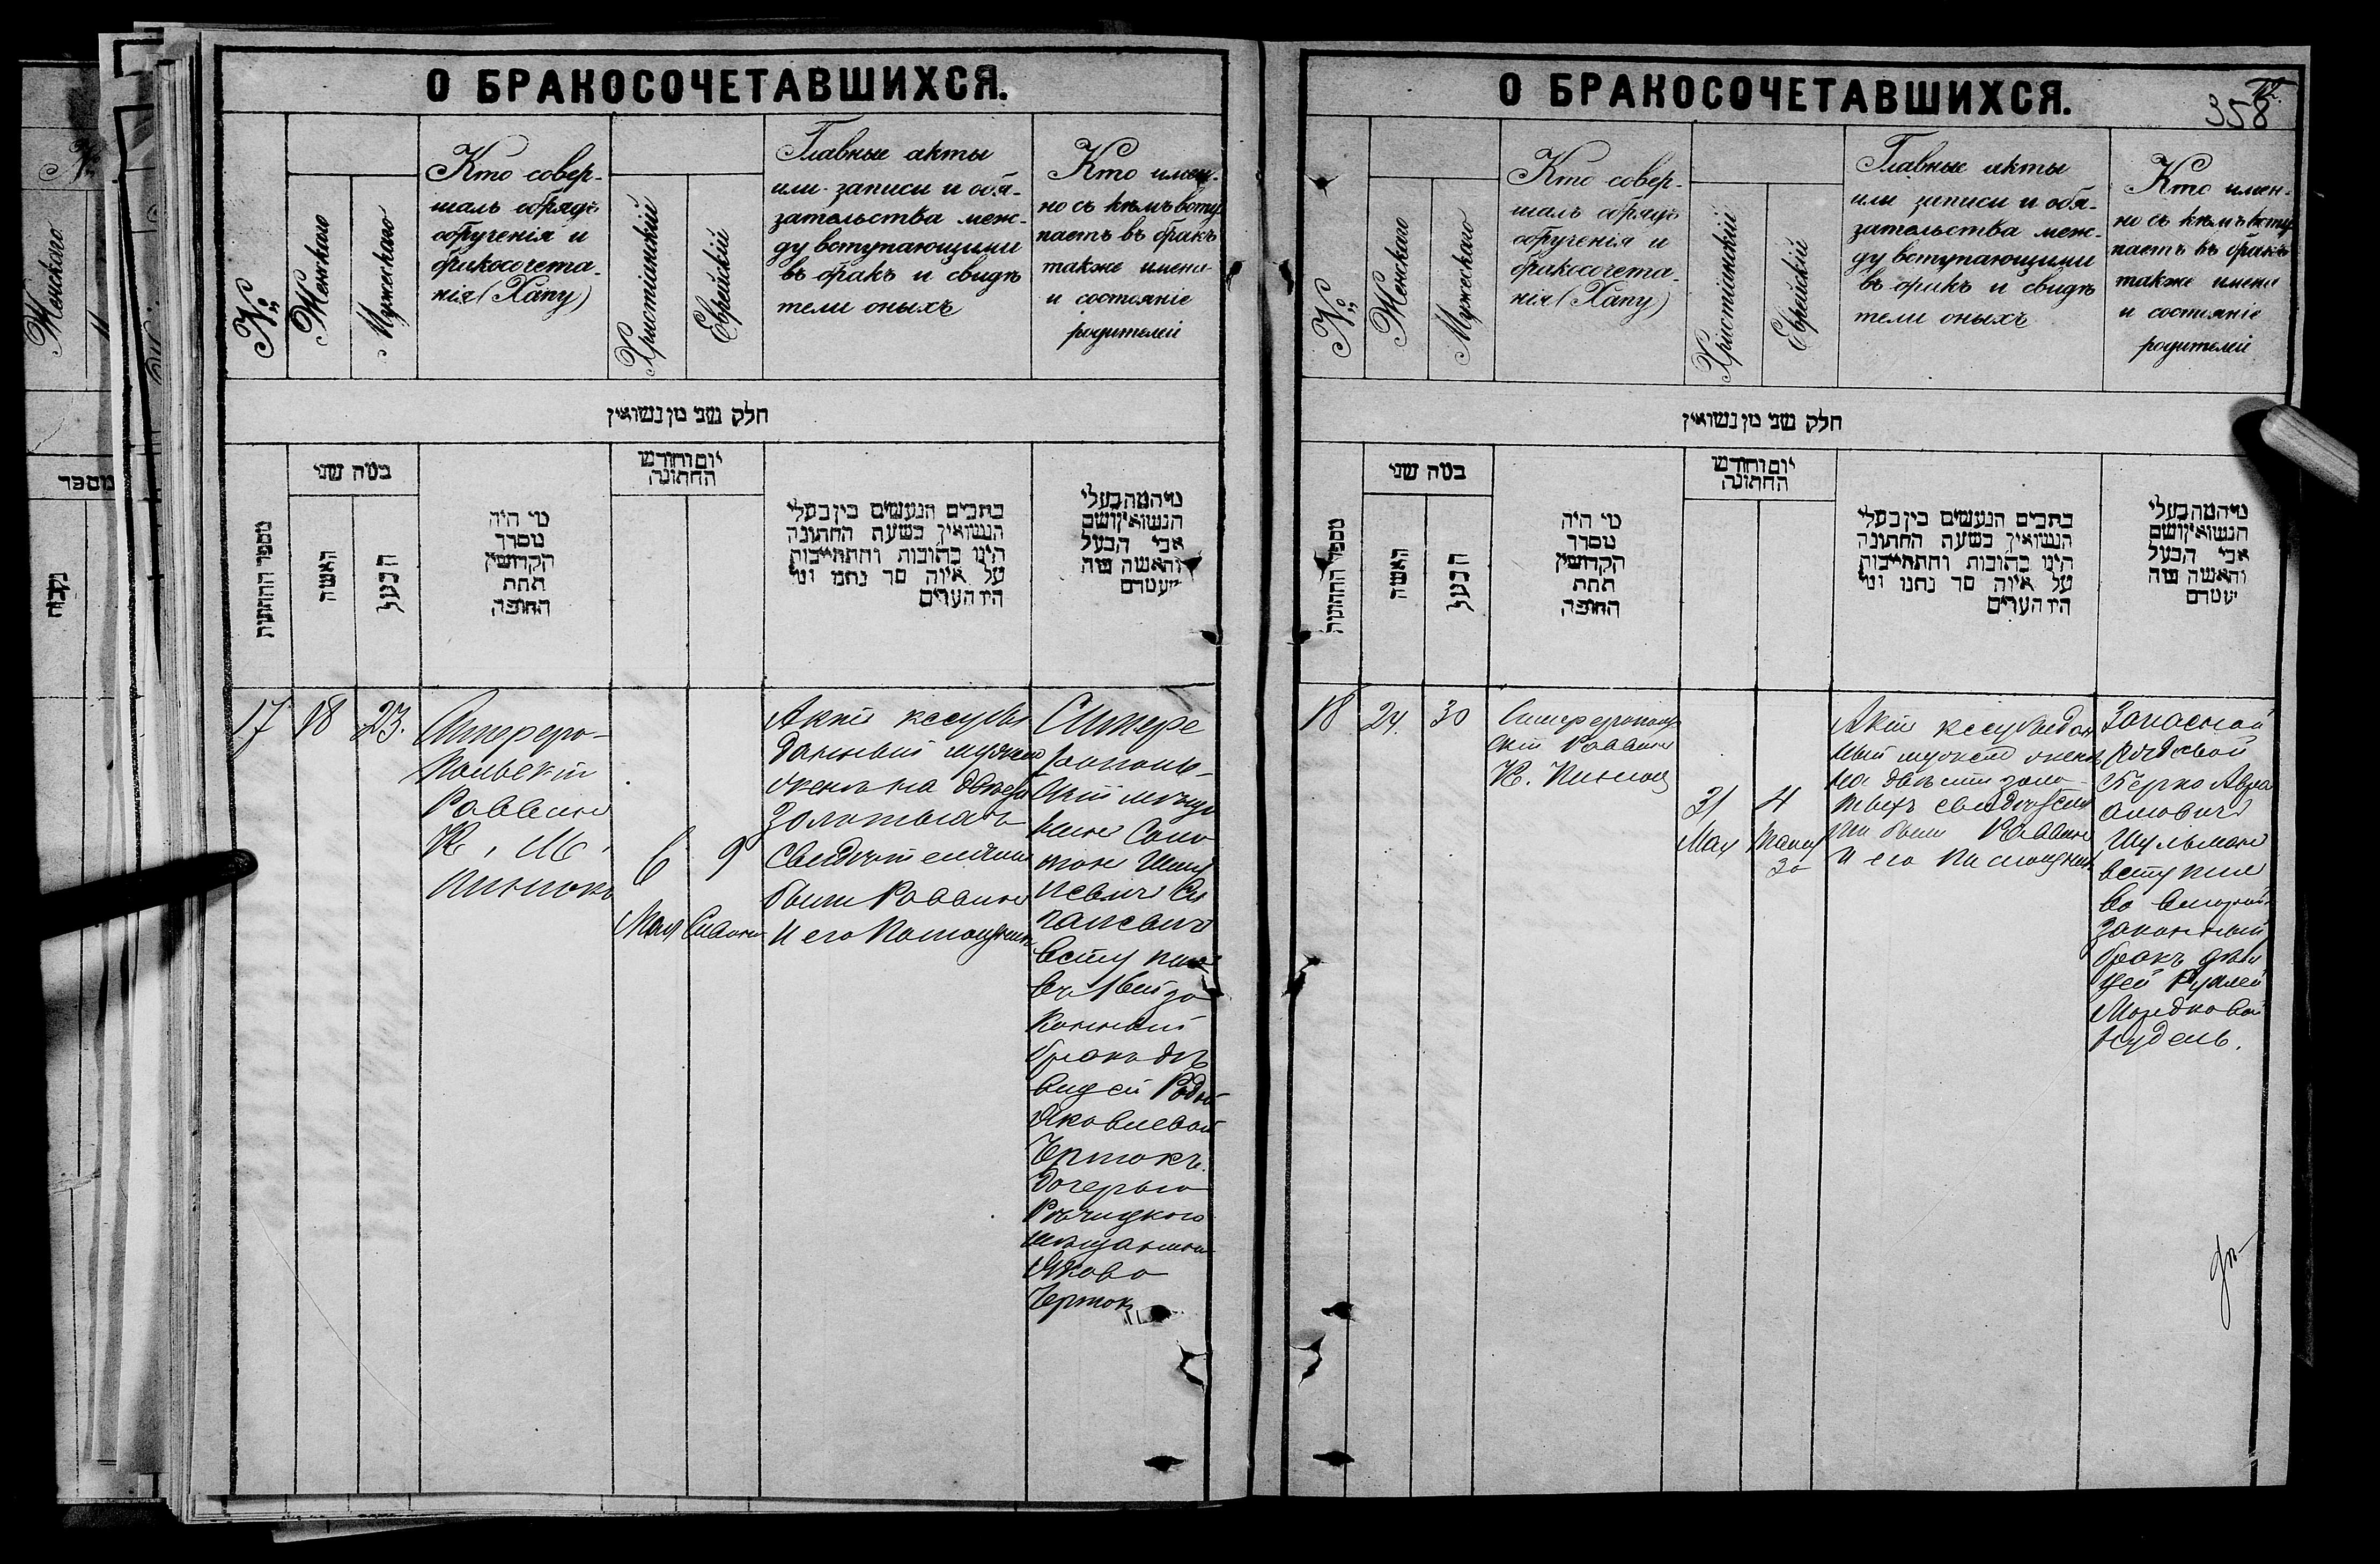 О БРАКОСОЧЕТАВШИХСЯ.
№
Женскаго
Мужескаго
Кто совер-
шалъ обрядъ
обрученія и
бракосочета-
нія (Хапу)
Христіанскій
Еврейскій
Главные акты
или записи и обя-
зательства меж-
ду вступающими
въ бракъ и свидѣ
тели оныхъ
Кто имен-
но съ кѣмъ всту
паетъ въ бракъ
также имена
и состояніе
родителей
חלק שני מן נשואין
מספר החתונות
כמה שני
האשה
הבעל
מי היה
מסדר
הקדושין
תחת
החופה
יום וחודש
החתונה
כתבים הנעשים בין בעלי
הנשואין בשעת החתונה
היינו כתובות והתחייבות
על איזה סך נתנו ומי
היו העדים
מי המה בעלי
הנשואין ושם
אבי הבעל
והאשה מה
מעמדם
17
18
23.
Симферо-
польскій
Раввинъ
К. М.
Пинпокъ
6
Мая
9
Сивонъ
Актъ кесубы
данный мужемъ
женѣ на двѣсти
золотыхъ
свидѣтелями
были Раввинъ
и его Помощникъ
Симфе
рополь-
скій мѣща
нинъ Соло
монъ
вступилъ
въ 1вый за
конный
бракъ дѣ
вицей
Яковлевой
Чертокъ
дочерью
Рѣчицкаго
мѣщанина
Якова
Чертокъ
О БРАКОСОЧЕТАВШИХСЯ.
358
№
Женскаго
Мужескаго
Кто совер-
шалъ обрядъ
обрученія и
бракосочета-
нія (Хапу)
Христіанскій
Еврейскій
Главные акты
или записи и обя-
зательства меж-
ду вступающими
въ бракъ и свидѣ
тели оныхъ
Кто имен-
но съ кѣмъ всту
паетъ въ бракъ
также имена
и состояніе
родителей
חלק שני מן נשואין
מספר החתונות
כמה שני
האשה
הבעל
מי היה
מסדר
הקדושין
תחת
החופה
יום וחודש
החתונה
כתבים הנעשים בין בעלי
הנשואין בשעת החתונה
היינו כתובות והתחייבות
על איזה סך נתנו ומי
היו העדים
מי המה בעלי
הנשואין ושם
אבי הבעל
והאשה מה
מעמדם
18
24.
30
Симферополь
скій Раввинъ
К.
31
Мая
4
Актъ кесубы дан
ный мужемъ женѣ
на двѣсти золо
тыхъ свидѣтеля
ми были Раввинъ
и его Помощникъ
Запасной
рядовой
Берко Авра
амовичъ
Шульманъ
вступилъ
во второй
законный
бракъ дѣви
цей Рухлей
Мордковой
Нудель.